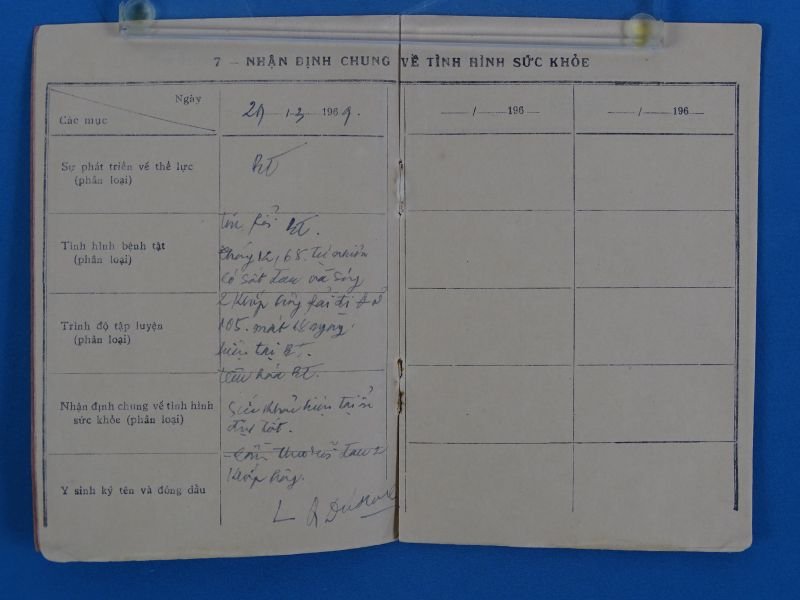 7 — NHẬN ĐỊNH CHUNG VỀ TÌNH HÌNH SỨC KHỎE
Ngày
Các mục
196 9.
/ 196
/ 196
Sự phát triển về thể lực
(phân loại)
BT
BT.
Tình hình bệnh tật
(phân loại)
tháng 12, 68. tự nhiên
có sốt đau và sưng
2 khớp háng phải đi
Trình độ tập luyện
(phân loại)
105. mất ngày.
hiện tại BT.
tiêu hóa BT.
Nhận định chung về tình hình
sức khỏe (phân loại)
Sức khỏe hiện tại ổn
định tốt.
đau 2
khớp háng.
Y sinh ký tên và đóng dấu